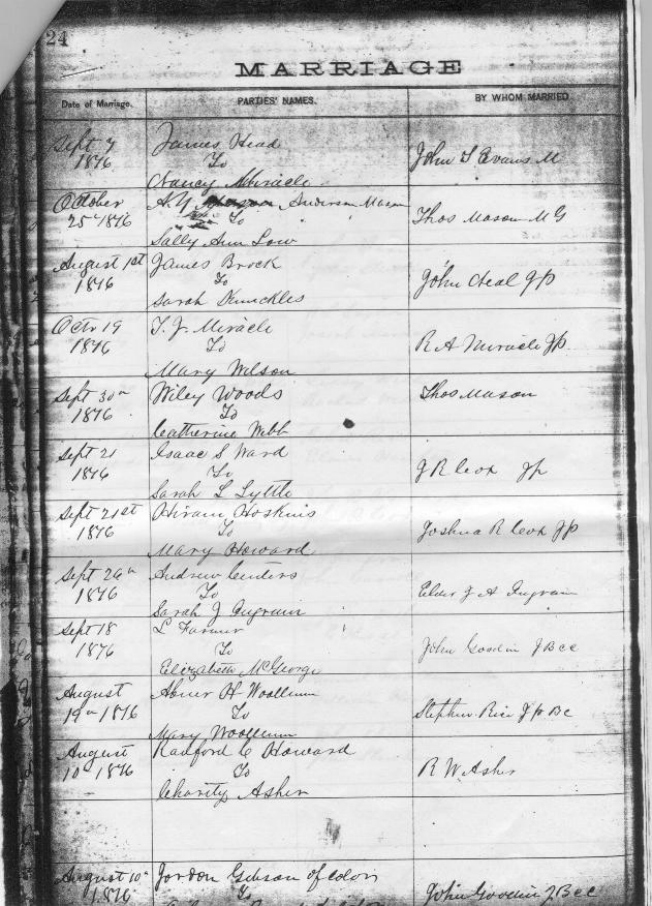 24
MARRIAGE
Date of Marriage. PARTIES' NAMES. BY WHOM MARRIED
Sept 7 James Head
1876 To John S Evans M
Nancy Miracle
October A. Y. Anderson Mason
25th 1876 To Thos Mason M G
Sally Ann Low
August 1st James Brock
1876 To John Heal Jp
Sarah Knuckles
Octr 19 T. J. Miracle
1876 To R A Miracle Jp
Mary Wilson
Sept 30th Wiley Woods Thos Mason
1876 To
Catherine Webb
Sept 21 Isaac S Ward
1876 To J R Cox Jp
Sarah L Lyttle
Sept 21st Hiram Hoskins
1876 To Joshua R Cox Jp
Mary Howard
Sept 26th Andrew Centers
1876 To Elder J A Ingram
Sarah J Ingram
Sept 18 L Farmer
1876 To John Goodin J B C C
Elizabeth McGeorge
August Abner H Woollum
19th 1876 To Stephen Rice Jp B C
Mary Woollum
August Radford C Howard
10th 1876 To R W Asher
Charity Asher
August 10th Jordon Gibson of color
1876 To John Goodin J B C C